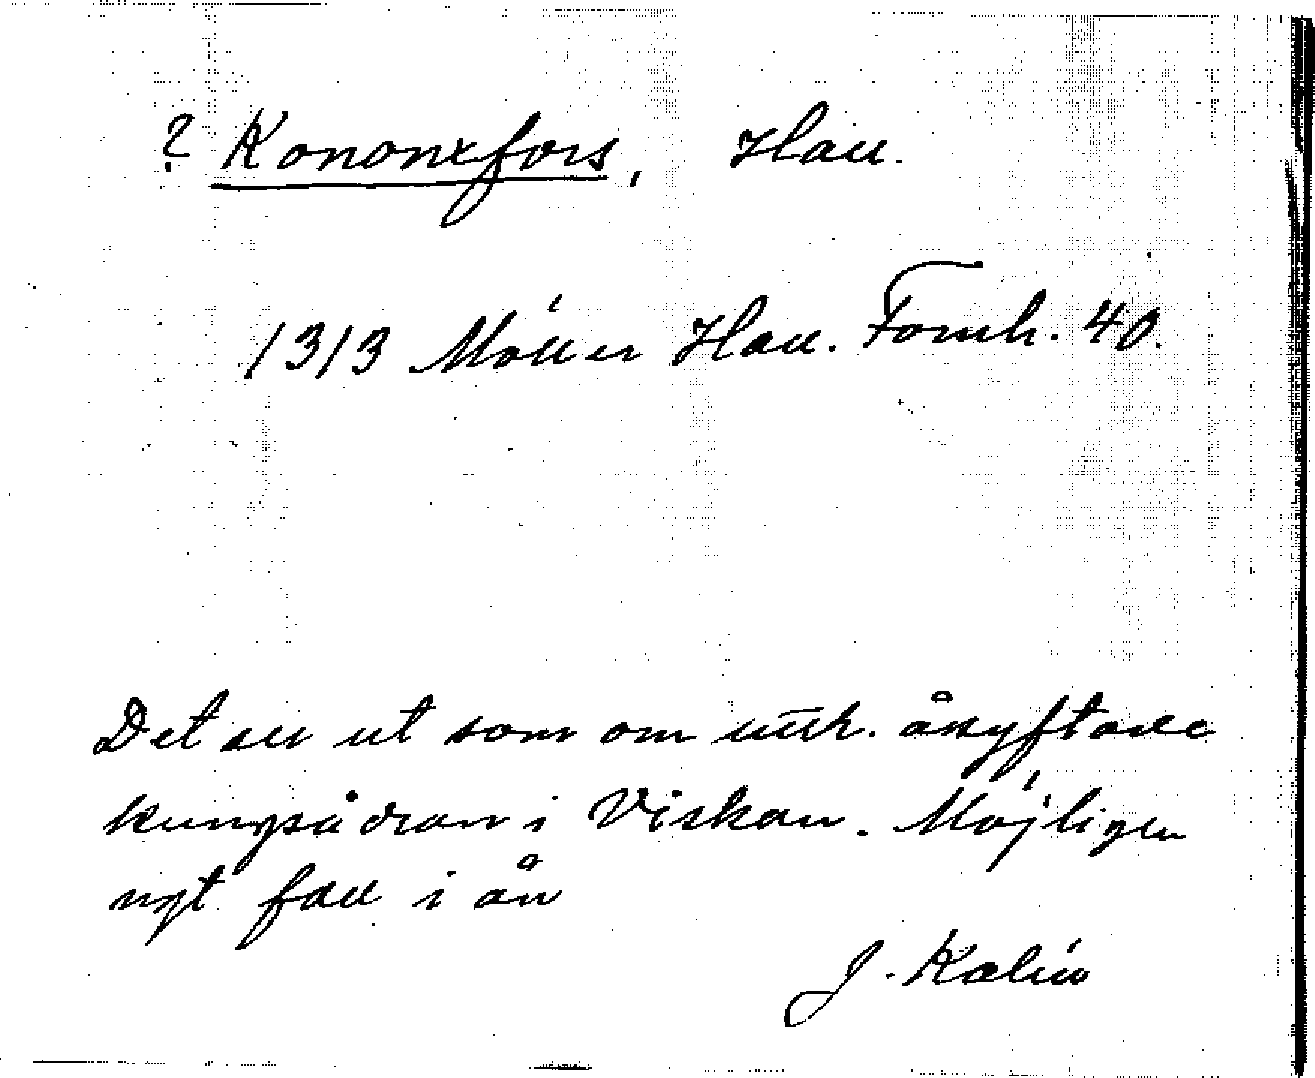 ? Kononxfors, Hall.
1313 Möller Hall. Fornh. 40.
Det ser ut som om uttr. åsyftade
kungsådran i Viskan. Möjligen
ngt fall i ån
J. Kalén